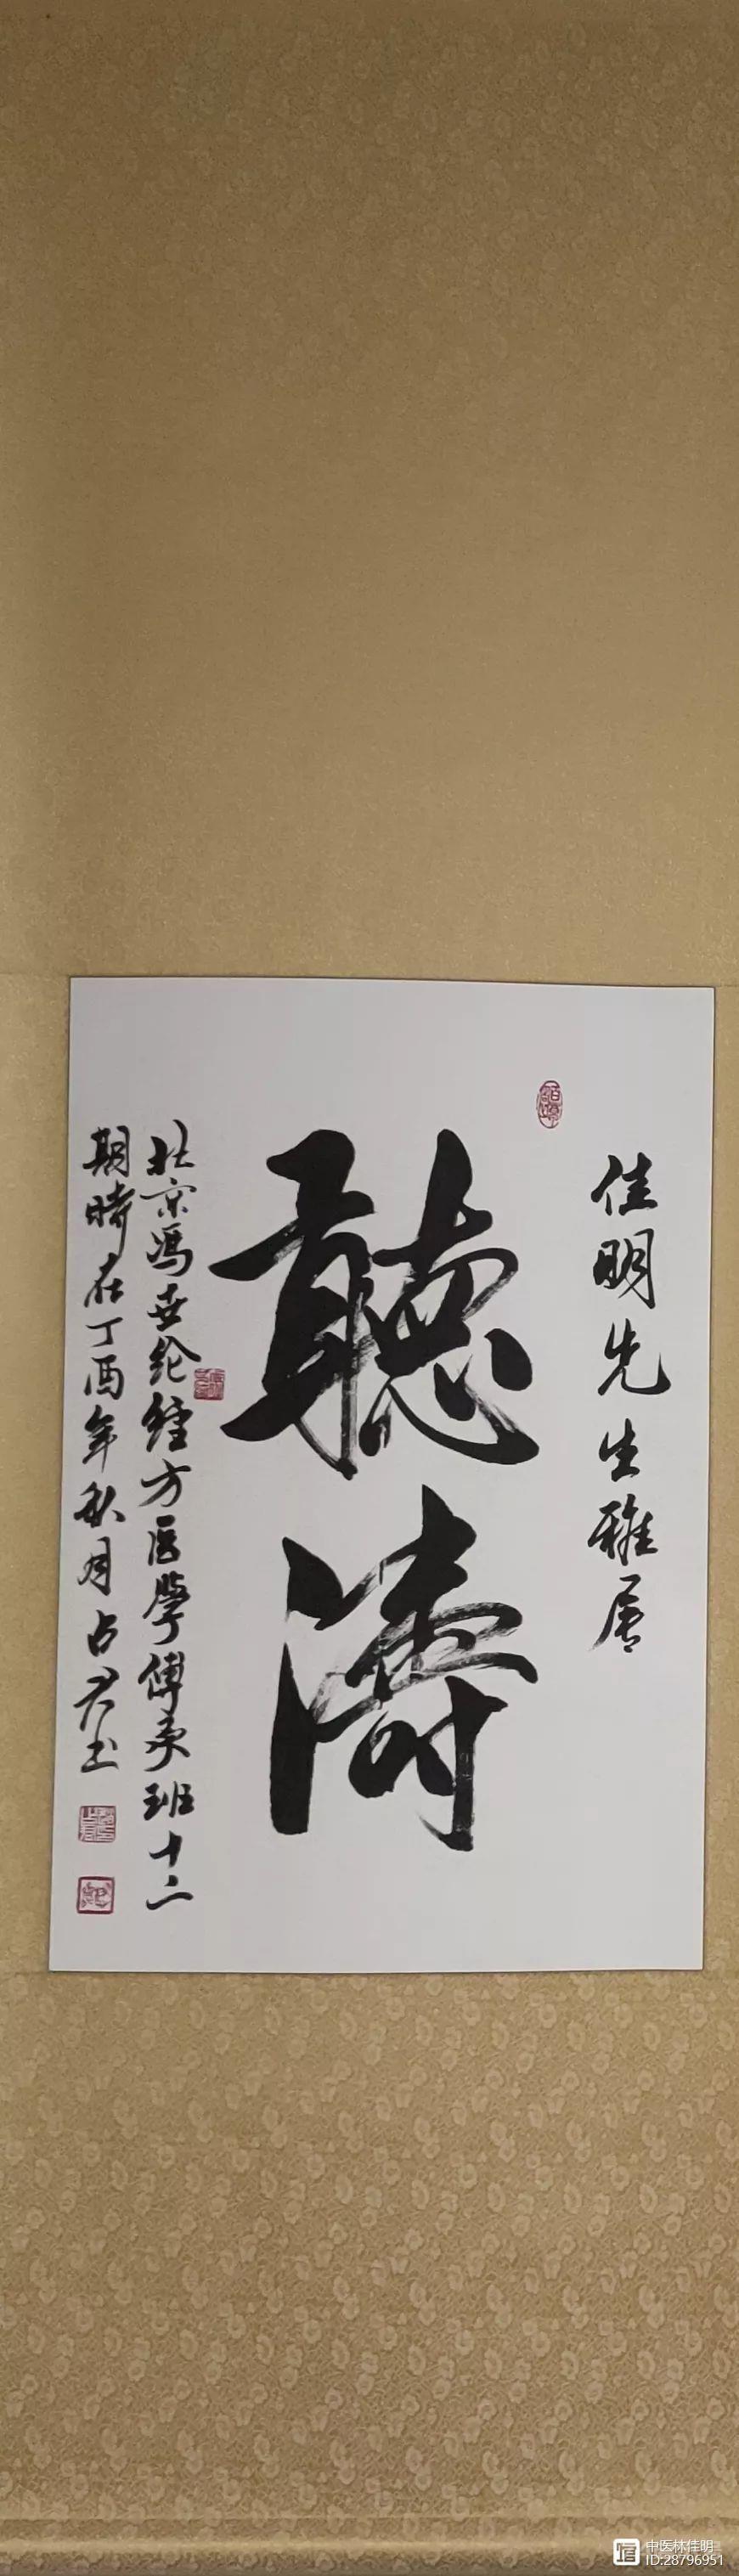 佳明先生雅居
聽濤
北京冯世纶經方医學傅承班十二
期時在丁酉年秋月占君书
中医林佳明
ID:28796951